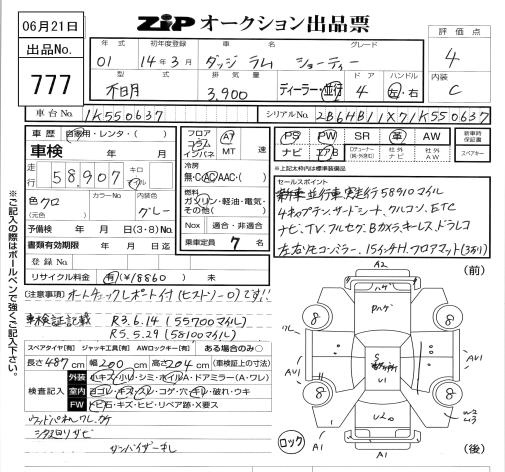 06月21日
ZiP オークション出品票
出品No.
777
評価点
4
内装
C
年式 初年度登録 車名 グレード
01 14年3月 ダッジ ラム ショーティー
型式 排気量 ドア ハンドル
不明 3,900 ディーラー・並行 4 左・右
車台No. 1K550637 シリアルNo. 2B6HB11X71K550637
車歴 自家用・レンタ・( )
車検 年 月
走行 58,907 キロ マイル
色 クロ (元色) カラーNo. 内装色 グレー
予備検 年 月 日(3・8)No.
書類有効期限 年 月 日迄
登録No.
リサイクル料金 有(¥18860) 未
フロア コラム インパネ AT MT 速
冷房 無・C・AC・AAC・( )
燃料 ガソリン・軽油・電気・その他( )
Nox 適合・不適合
乗車定員 7 名
PS PW SR 革 AW 新車時保証書
ナビ エアB TVチューナー(純・外添C) 社外ナビ 社外AW スペアキー
*上記太枠内は標準装備品
セールスポイント
新車並行車 実走行58910マイル
4キャプテンサードシート、クルコン、ETC
ナビ、TV、フルセグ、Bカメラ、キーレス、ドラレコ
左右リモコンミラー、15インチH、フロアマット(3カリ)
(注意事項) オートチェックレポート付(ヒストリー〇)です!!
車検証記載 R3.6.14(55700マイル)
R5.5.29(58100マイル)
スペアタイヤ[有] ジャッキ工具[有] AWロックキー[有] ある場合のみ〇
長さ 487 cm 幅 200 cm 高さ 204 cm (車検証上の寸法)
検査記入
外装 小キズ・小凹・シミ・ホイルA・ドアミラー(A・ワレ)
室内 ヨゴレ・キズ・スレ・コゲ・穴・キレ・破れ・ウキ
FW トビ石・キズ・ヒビ・リペア跡・X要ス
ウッドパネルワレ、カケ
シタ廻りサビ
サンバイザーキレ
※ご記入の際はボールペンで強くご記入下さい。
(前)
A2
ハゲ
Pハゲ
8
8
ワレ
A1
AU1
S
U1
AU1
8
8
U2
W2
U3
ロック
A1
A1
(後)